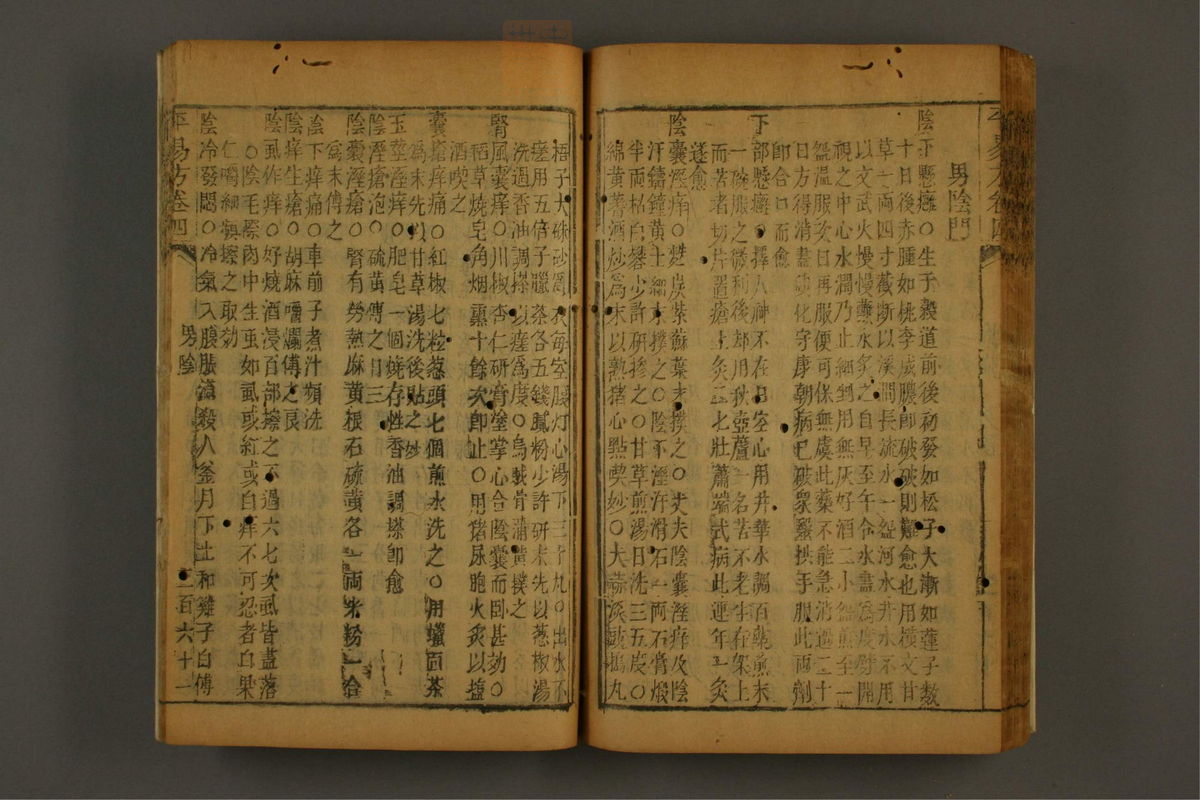 男陰門
陰下懸癰○生于穀道前後初發如松子大漸如蓮子數
十日後赤腫如桃李成膿即破破則難愈也用橫文甘
草一兩四寸截斷以溪澗長流水一盌河水井水不用
以文武火慢慢蘸水炙之自早至午令水盡為度劈開
視之中心水潤乃止細剉用無灰好酒二小盌煎至一
盌溫服次日再服便可保無虞此藥不能急消過二十
日方得消盡康朝病已破眾醫拱手服此兩劑
即合而愈
下部懸癰○擇人神不在日空心用井華水調百藥煎末
一盌服之微利後却用秋壺蘆一名苦不老生在架上
而苦者切片置瘡上灸二七壯蕭端式病此連年一灸
遂愈
陰囊溼痒○炭紫蘇葉末撲之○丈夫陰囊溼痒及陰
汗鑄鐘黃土細末撲之○陰下溼汗滑石一兩石膏煅
半兩枯白礬少許研摻之○甘草煎湯日洗三五度○
綿黃蓍酒炒為末以熟猪心點喫妙○大蒜淡豉搗丸
梧子大硃砂為衣每空腹灯心湯下三十丸○出水不
瘥用五倍子臘茶各五錢膩粉少許研末先以葱椒湯
洗過香油調搽以瘥為度○烏賊骨蒲黃撲之
腎風囊痒○川椒杏仁研膏塗掌心合陰囊而卧甚効○
稻草燒皂角烟熏十餘次即止○用猪尿胞火炙以塩
酒喫之
囊瘡痒痛○紅椒七粒葱頭七個煎水洗之○用蠟面茶
為末先以甘草湯洗後貼之妙
玉莖溼痒○肥皂一個燒存性香油調搽即愈
陰溼瘡泡○硫黃傅之日三
陰囊溼瘡○腎有勞熱麻黃根石硫黃各一兩米粉一合
為末傅之
陰下痒痛○車前子煮汁頻洗
陰痒生瘡○胡麻嚼爛傅之良
陰虱作痒○好燒酒浸百部擦之不過六七次虱皆盡落
○陰毛際肉中生虫如虱或紅或白痒不可忍者白果
仁嚼細頻擦之取効
陰冷發悶○冷氣入腹脹滿殺人釜月下土和雞子白傅
平易方卷四
男陰
一百六十一